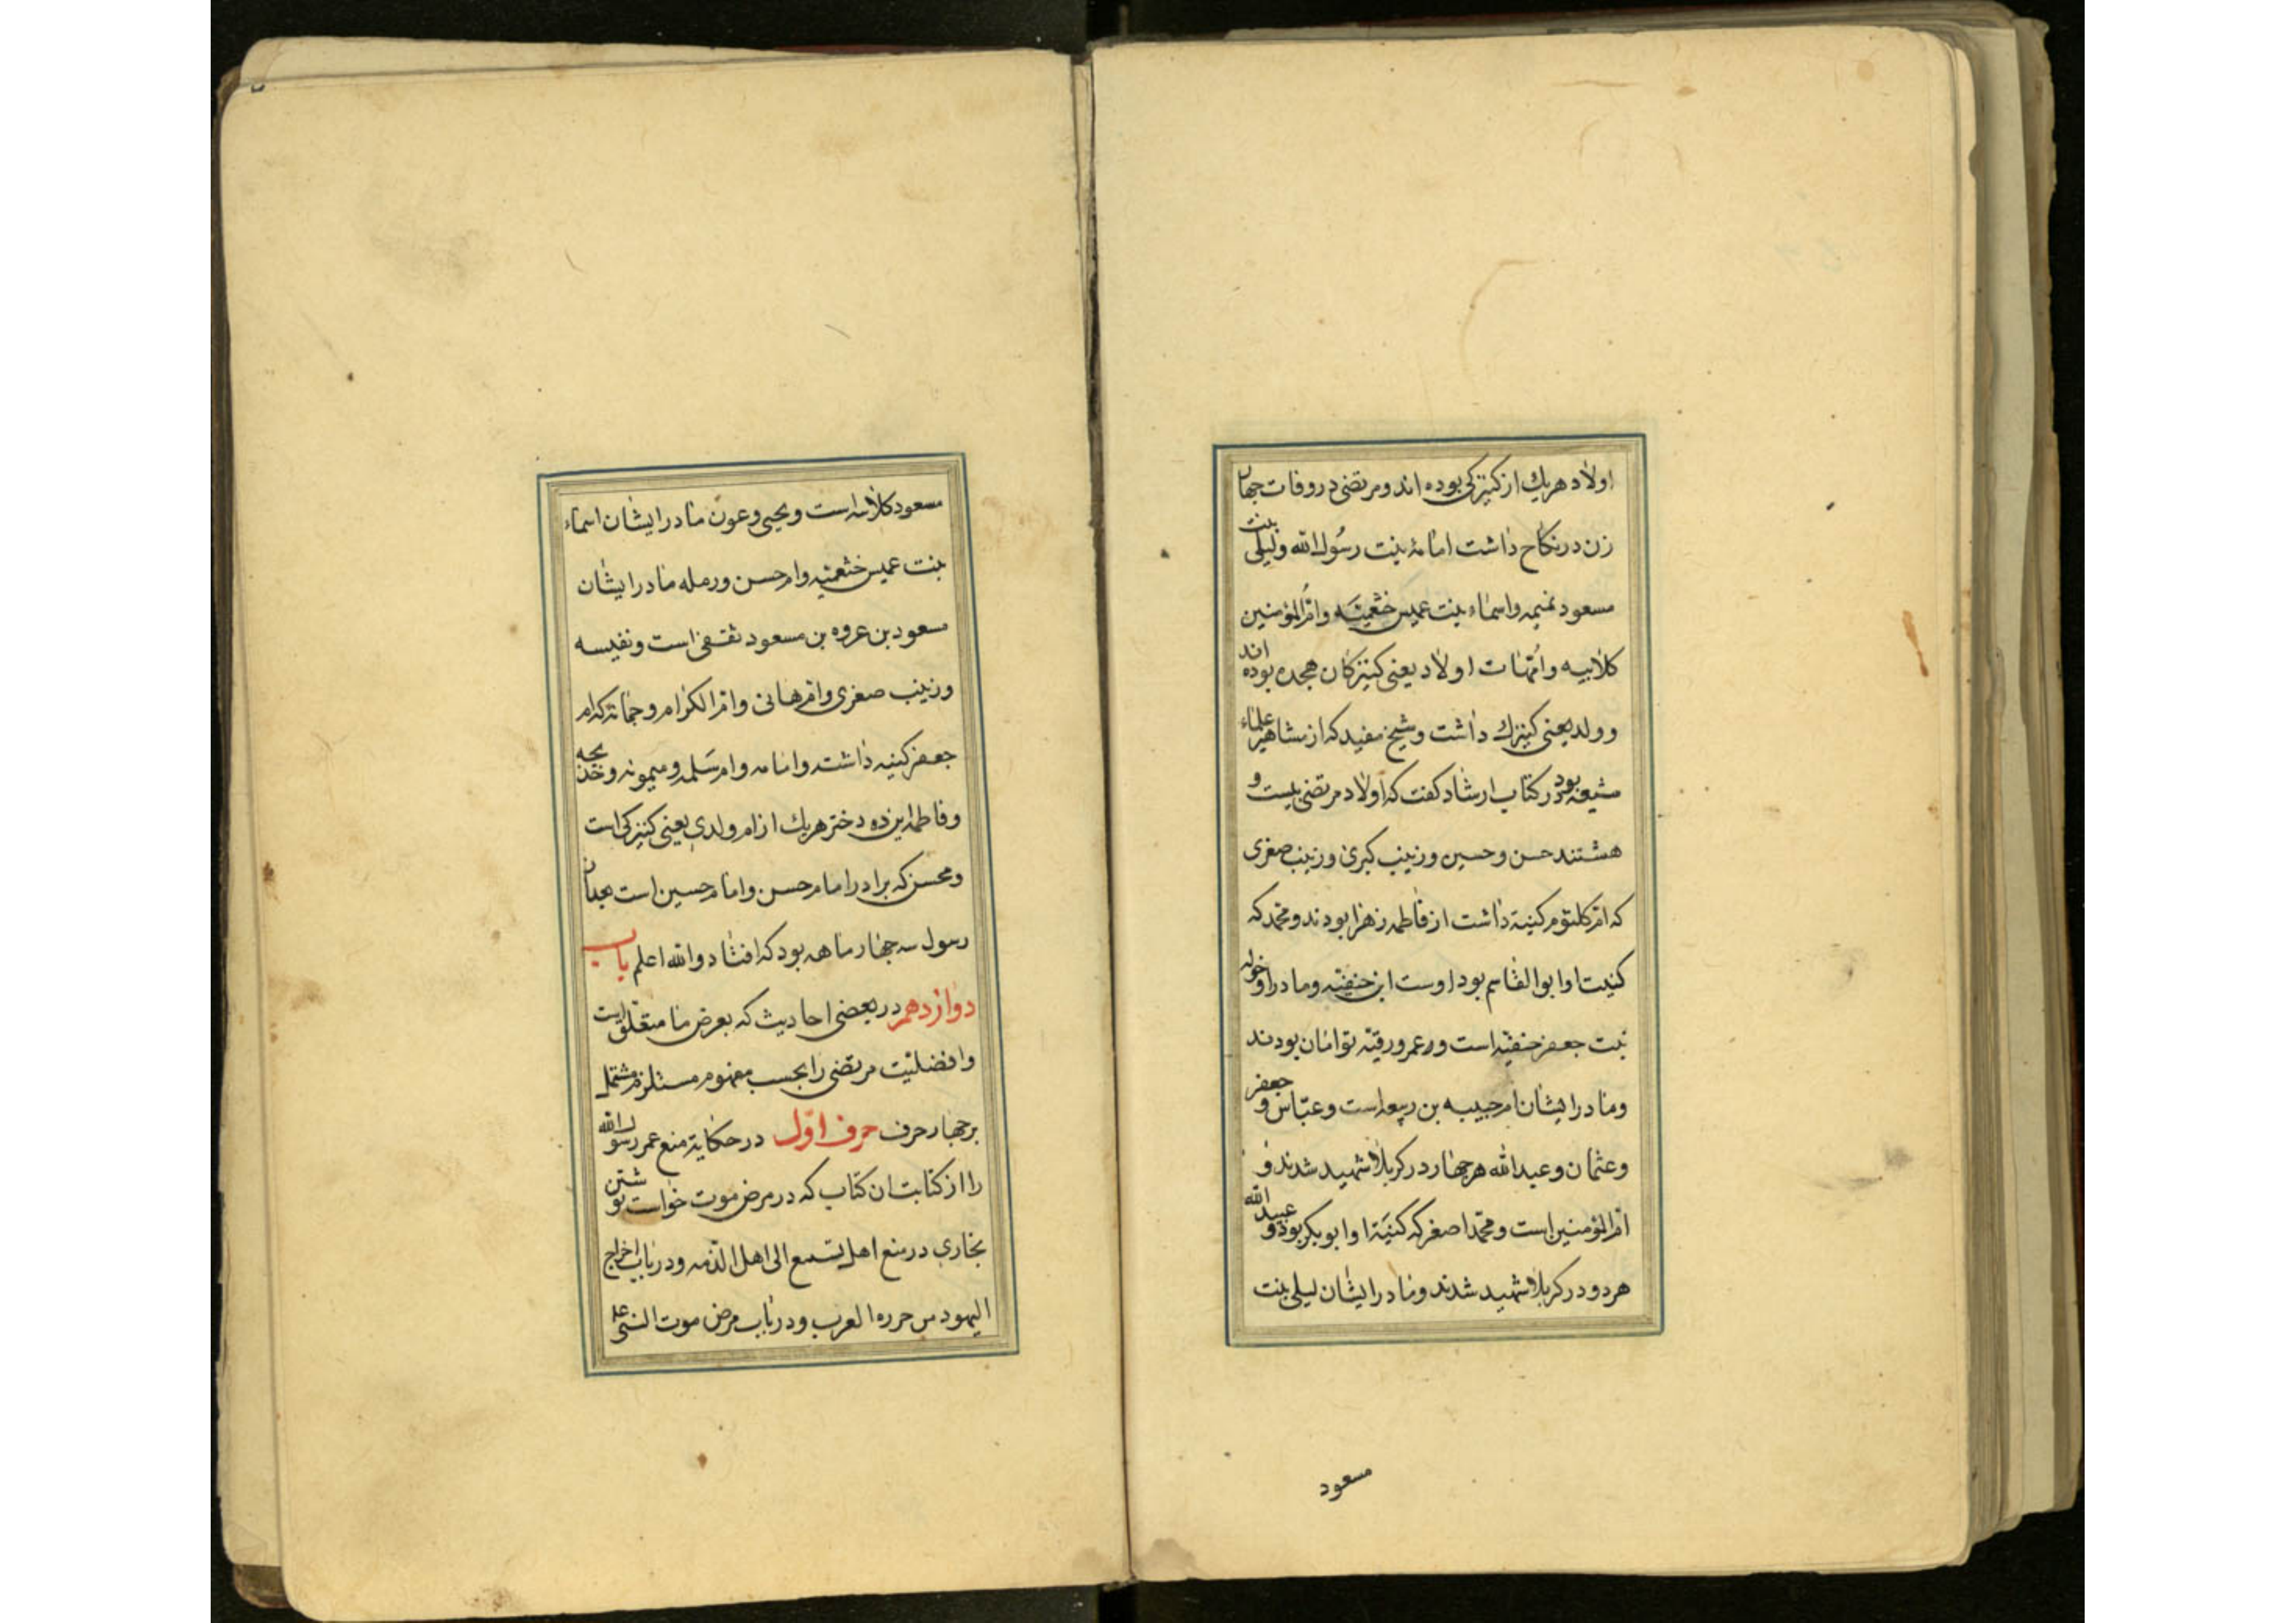 اولاد هریك از کنیزکی بوده اند و مرتضی در وفات چهار
زن در نکاح داشت امامه بنت رسول الله ولیلی بنت
مسعود تمیمه واسماء بنت عمیس خثعمیه وام المؤمنین
کلابیه وامهات اولاد یعنی کنیزکان هجده بوده اند
وولد یعنی کنیزك داشت وشیخ مفید که از مشاهیر علماء
شیعه بود در کتاب ارشاد کفت که اولاد مرتضی بیست و
هشتند حسن وحسین وزینب کبری وزینب صغری
که ام کلثوم کنیة داشت از فاطمه زهرا بودند ومحمد که
کنیت او ابوالقاسم بود اوست ابن حنفیه ومادر او خوله
بنت جعفر حنفیه است وعمر ورقیة توامان بودند
ومادر ایشان ام حبیبه بن ربیعه است وعباس وجعفر
وعثمان وعبدالله هر چهار در کربلا شهید شدند و
ام المؤمنین است ومحمد اصغر که کنیة او ابوبکر بود وعبیدالله
هر دو در کربلا شهید شدند ومادر ایشان لیلی بنت
مسعود
مسعود است ویحیی وعون مادر ایشان اسماء
بنت عمیس خثعمیه وام حسن ورمله مادر ایشان
مسعود بن عروه بن مسعود ثقفی است ونفیسه
وزینب صغری وام هانی وام الکرام وجمانة که ام
جعفر کنیه داشت وامامه وام سلمه ومیمونه وخدیجه
وفاطمه این ده دختر هریك از ام ولدی یعنی کنیزکی است
ومحسن که برادر امام حسن وامام حسین است بعد از
رسول سه چهار ماهه بود که افتاد والله اعلم باب
دوازدهم در بعضی احادیث که بعرض ما متعلق است
وافضلیت مرتضی را بحسب مفهوم مستلزم مشتمل
بر چهار حرف حرف اول در حکایة منع عمر رسول الله
را از کتابت ان کتاب که در مرض موت خواست نوشتن
بخاری در منع اهل الی اهل الذمه ودر باب اخراج
الیهود من العرب ودر باب مرض موت النبی